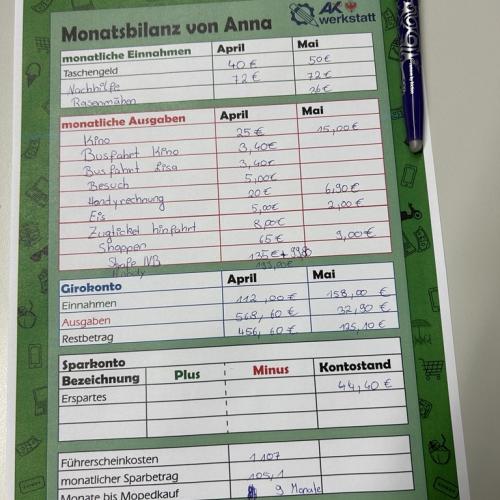 Monatsbilanz von Anna
AK werkstatt
monatliche Einnahmen April Mai
Taschengeld 40 € 50 €
Nachhilfe 72 € 72 €
Rasenmähen 36 €
monatliche Ausgaben April Mai
Kino 25 € 15,00 €
Busfahrt Kino 3,40 €
Busfahrt Lisa 3,40 €
Besuch 5,00 €
Handyrechnung 20 € 6,90 €
Eis 5,00 € 2,00 €
Zugticket hinfahrt 8,00 €
Shoppen 65 € 9,00 €
Strafe IVB 135 € +
Handy
Girokonto April Mai
Einnahmen 112,00 € 158,00 €
Ausgaben 568,60 € 32,90 €
Restbetrag 456,60 € 125,10 €
Sparkonto
Bezeichnung Plus Minus Kontostand
Erspartes 44,40 €
Führerscheinkosten 1107
monatlicher Sparbetrag 105,1
Monate bis Mopedkauf 9 Monate